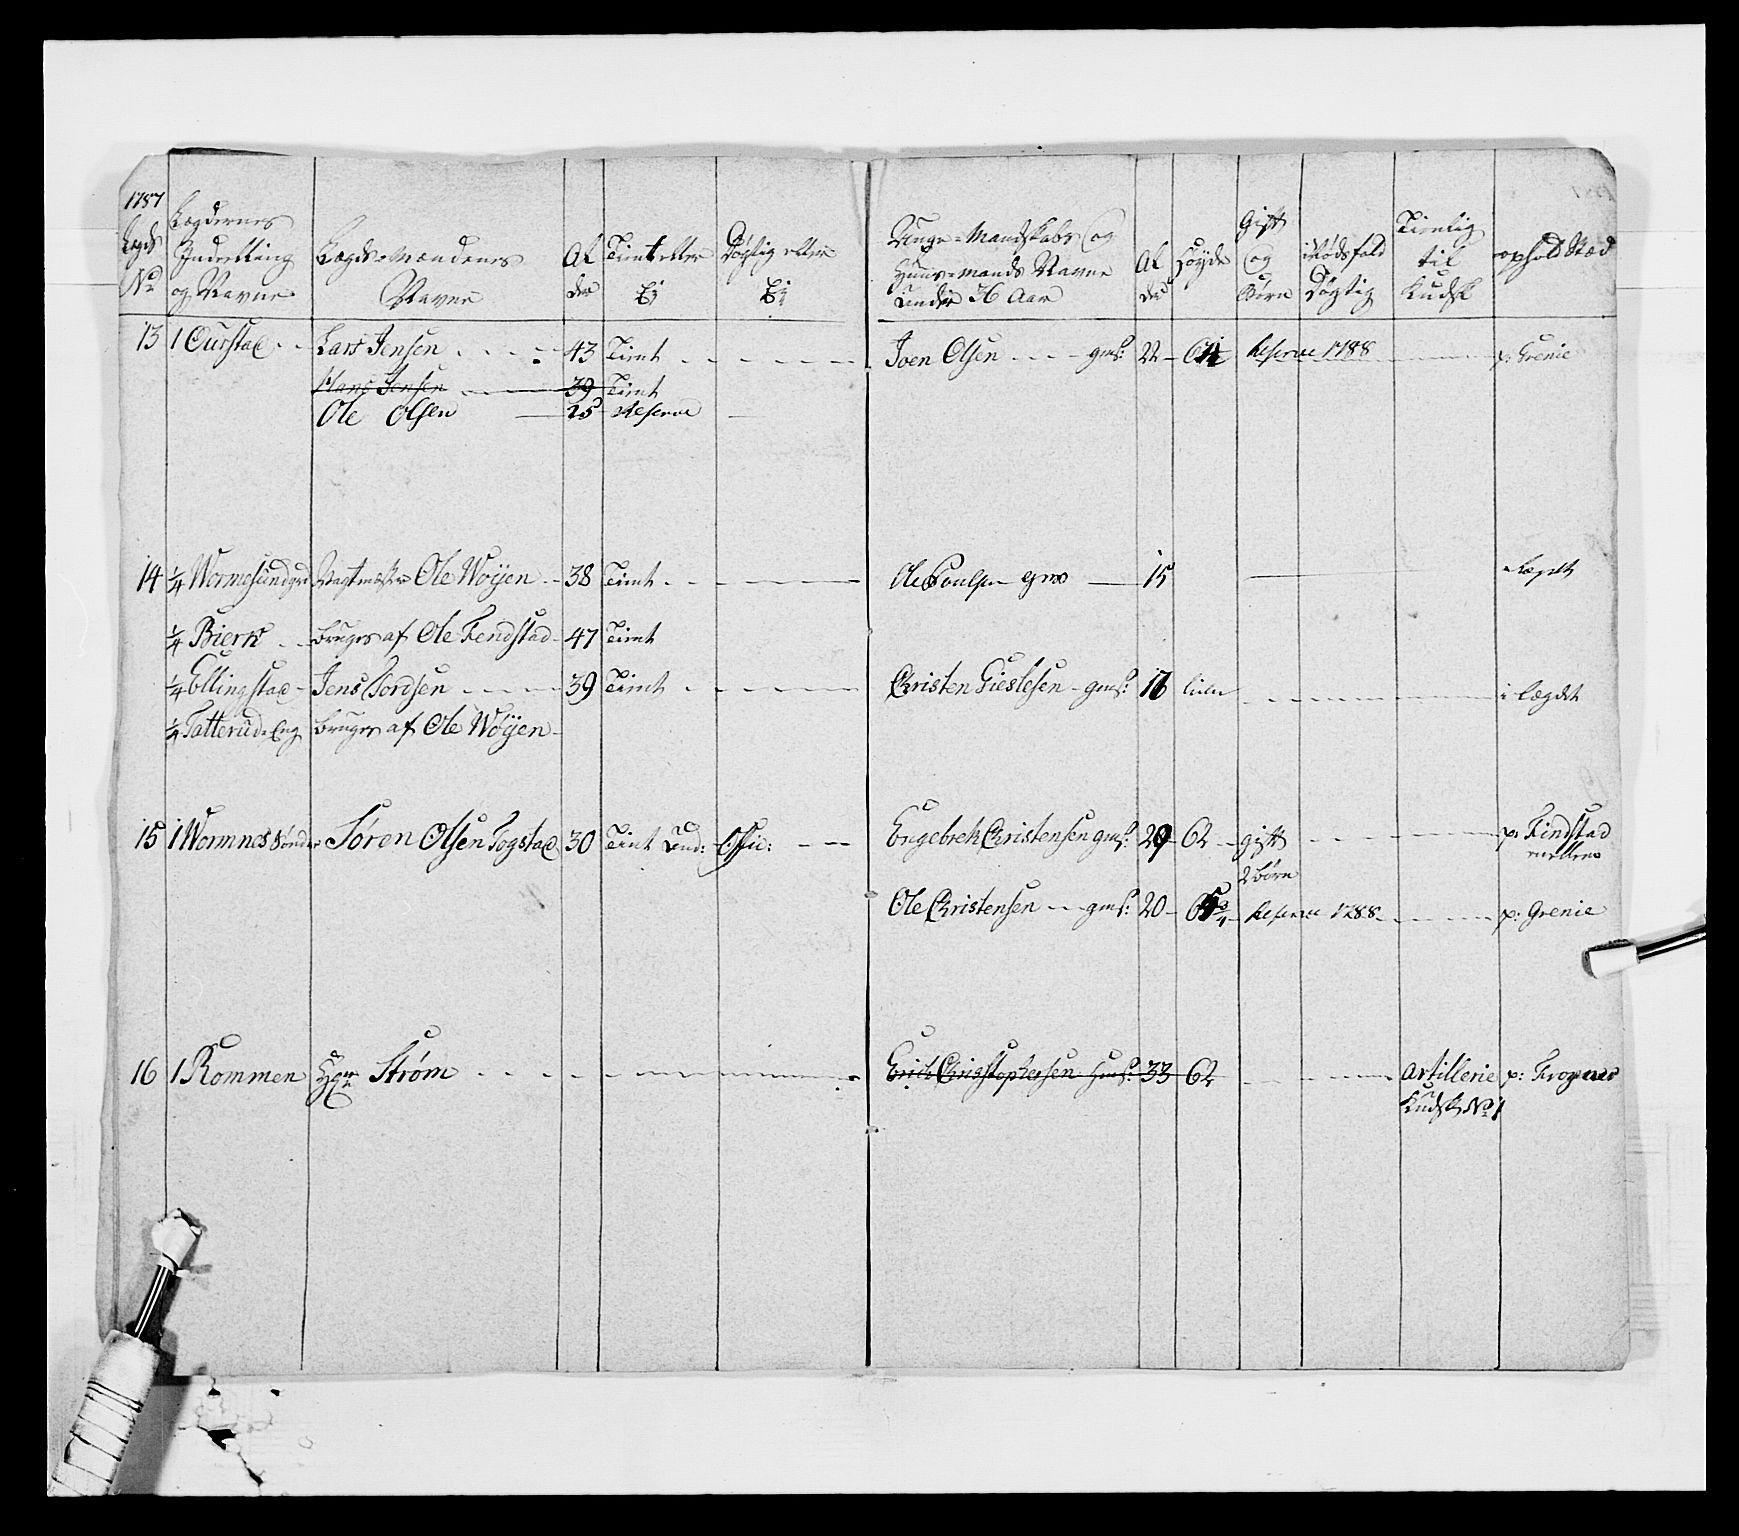 1787
Legds No | Legdernes Inddelling og Navne | Legds-Mændenes Navne | Al der | Tient eller Ej | Døgtig eller Ej | Unge-Mandskabs og Huus-mands Navne Under 36 Aar | Al der | Høyde | Gift og Børn | i Nødsfald Døgtig | Tienlig til Kudsk | ophold Stæd
13 | 1 Ourstad | Lars Jensen | 43 | Tient | Joen Olsen gms: | 22 | Reserve 1788 | p: Grenie
Hans Jensen | 39 | Tient
Ole Olsen | 25 | Reserve
14 | 1/4 Wormesundgrd | Vagtmæster Ole Wøyen | 38 | Tient | Ole Poulsen gms | 15 | i Lægdet
1/4 Bierke | bruges af Ole Fendstad | 47 | Tient
1/4 Ellingstad | Jens Tordsen | 39 | Tient | Christen Gieslesen gms: | liden | i Lægdet
1/4 Tatterud Eng | bruges af Ole Wøyen
15 | 1 Wormnes Sønder | Søren Olsen Togstad | 30 | Tient Und: Offic: | Engebreth Christensen gms: | 29 | 62 | gift | p: Findstad
2 børn | mellem
Ole Christensen gms: | 20 | Reserve 1788 | p: Grenie
16 | 1 Rommen | Hr Strøm | Erich Christophersen Hms: | 33 | 62 | Artillerie | p: Frogner
Kudsk No 1